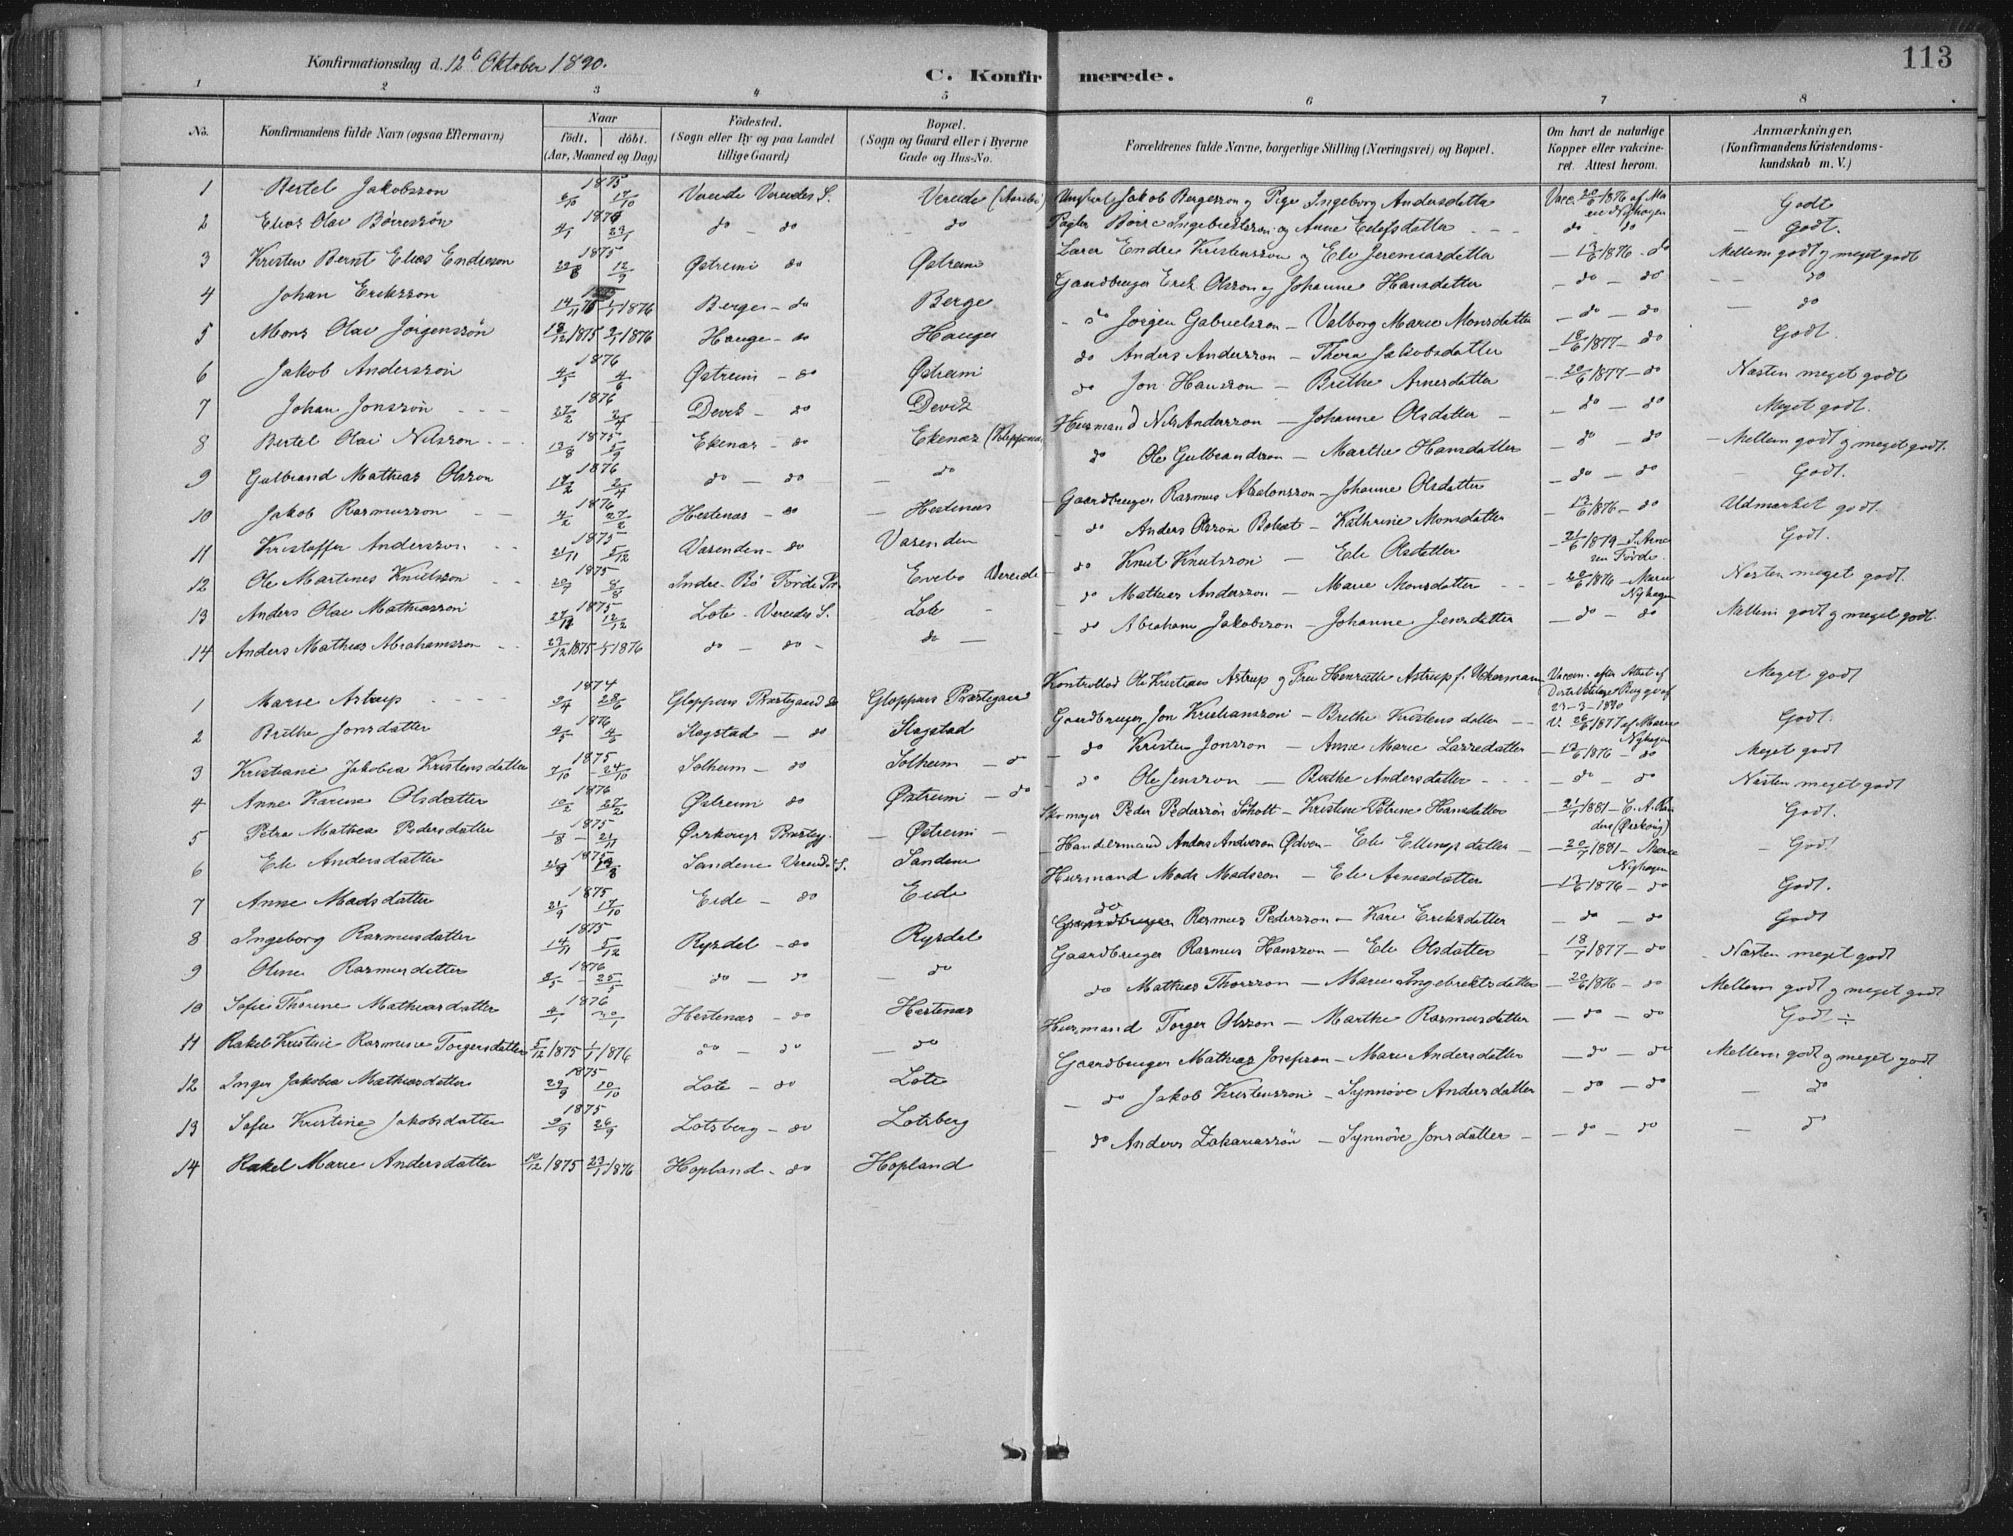 113
Konfirmationsdag d. 12t Oktober 1890.
C. Konfirmerede.
1 2 3 4 5 6 7 8
No. Konfirmandens fulde Navn (ogsaa Efternavn) Naar født. døbt. (Aar, Maaned og Dag) Fødested. (Sogn eller By og paa Landet tillige Gaard) Bopæl. (Sogn og Gaard eller i Byerne Gade og Hus-No. Forældrenes fulde Navne, borgerlige Stilling (Næringsvei) og Bopæl. Om havt de naturlige Kopper eller vakcineret. Attest herom. Anmærkninger. (Konfirmandens Kristendomskundskab m. V.)
1 Bertel Jakobsson 1875 6/10 17/10 Vereide Vereides S. Vereide Jakob Bergesson og Pige Ingeborg Andersdatter Vacc. 20/6 1876 af Marie Nyhagen Godt
2 Elias Olai Børresson 1876 4/1 23/1 do - do do Børre Ingebrectsson og Anne Eilefsdatter do do Godt.
3 Kristen Bernt Elias Endreson 1875 22/8 12/9 Østreim do Østreim Lærer Endre Kristensson og Eli Jeremiasdatter 13/6 1876 do Mellem godt og meget godt
4 Johan Eriksson 14/11 75 1/1 1876 Berge - do Berge Gaardbruger Erik Olsson og Johanne Hansdatter do - do do
5 Mons Olai Jørgenssøn 18/12 1875 2/1 1876 Hauge - do Hauge do Jørgen Gabrielsson - Valborg Marie Monsdatter do - do do
6 Jakob Anderssøn 1876 4/5 4/6 Østreim - do Østreim do Anders Andersson - Thora Jakobsdatter 18/6 1877 - do Godt.
7 Johan Jonssøn 1876 27/2 2/4 Devik - do Devik do Jon Hansson - Brithe Arnesdatter 20/6 1877 - do Næsten meget godt
8 Bertel Olai Nilsson 1875 13/8 5/9 Ekenæs - do Ekenæs Husmand Nils Andersson - Johanne Olsdatter do - do Meget godt.
9 Gulbrand Mathias Olsson 1876 14/2 2/4 do - do do do Ole Gulbrandsson - Marthe Hansdatter do - do Mellem godt og meget godt.
10 Jakob Rasmusson 1876 4/2 27/2 Hestenæs - do Hestenæs Gaardbruger Rasmus Absalonsson - Johanne Olsdatter do - do Godt.
11 Kristoffer Andersson 1875 21/11 5/12 Vasenden - do Vasenden do Anders Olsson - Kathrine Monsdatter 13/6 1876 - do Udmærket godt.
12 Ole Martines Knutsson 1875 20/7 8/8 Indre - Bø Førde Evebø Vereide do Knut Knutsson - Eli Olsdatter 21/6 1879 Førde. Godt.
13 Anders Olai Mathiasson 1875 27/11 12/12 Lote - Vereides S. Lote do Mathias Andersson - Marie Monsdatter 20/6 1876 - Marie Nyhagen Næsten meget godt.
14 Anders Mathias Abrahamsson 23/12 1875 1876 do - do do do Abraham Jakobsson - Johanne Jensdatter do - do Mellem godt og meget godt
1 Marie Astrup 1874 9/4 28/6 Gloppens Præstegaard do Gloppens Præstegaard Ole Kristian Astrup og Fru Henriette Astrup f. Ackermann Vaccin. efter Attest af 23-3-1890 Meget godt
2 Brithe Jonsdatter 1876 2/5 4/6 Slagstad - do Slagstad Gaardbruger Jon Kristiansson - Brithe Kristensdatter V. 26/6 1877 af Marie Nyhagen Godt.
3 Kristiane Jakobea Kristensdatter 1875 7/10 24/10 Solheim - do Solheim - do do Kristen Jonsson - Anne Marie Lassedatter 13/6 1876 - do Meget godt
4 Anne Karine Olsdatter 1876 10/2 27/2 Østreim do Østreim - do do Ole Jensson - Brithe Andersdatter do - do Næsten meget godt
5 Petra Mathea Pedersdatter 1875 1/8 21/11 Ørskougs Præsteg. Østreim Skomager Peder Pederssøn Scholt - Kristine Petrine Hansdatter 21/7 1881 (Ørskoug) Godt.
6 Eli Andersdatter 1875 Sandene Vereides S. Sandene Handelsmand Anders Anderson Ødven - Eli Ellingsdatter 20/7 1881 - Marie Nyhagen Godt
7 Anne Madsdatter 1875 21/9 17/10 Eide - do Eide Husmand Mads Madsson - Eli Arnesdatter 13/6 1876 - do Godt.
8 Ingeborg Rasmusdatter 1875 14/11 5/12 Rysdal - do Rysdal do Rasmus Pedersson - Kari Eriksdatter do - do Godt
9 Oline Rasmusdatter 1876 8/5 25/5 do - do do Gaardbruger Rasmus Hansson - Eli Olsdatter 18/7 1877 - do Næsten meget godt
10 Sofie Thorine Mathiasdatter 1876 4/1 30/1 Hestenæs - do Hestenæs do Mathias Thorsson - Marie Ingebrektsdatter 20/6 1876 - do Mellem godt og meget godt
11 Rakel Kristine Rasmusine Torgersdatter 5/12 1875 1/1 1876 do - do do Husmand Torger Olsson - Marthe Rasmusdatter do - do Godt ÷
12 Inger Jakobea Mathiasdatter 1875 29/9 10/10 Lote - do Lote Gaardbruger Mathias Josefson - Mari Andersdatter do - do Mellem godt og meget godt
13 Sofie Kristine Jakobsdatter 1875 9/9 26/9 Lotsberg - do Lotsberg do Jakob Kristensson - Synnøve Andersdatter do - do do
14 Rakel Marie Andersdatter 10/12 1875 23/1 1876 Hopland - do Hopland do Anders Zakariassøn - Synnøve Jonsdatter do - do do